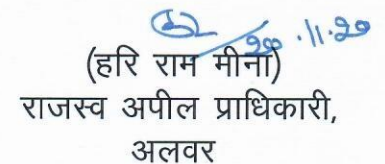 20.11.20
(हरि राम मीना)
राजस्व अपील प्राधिकारी,
अलवर